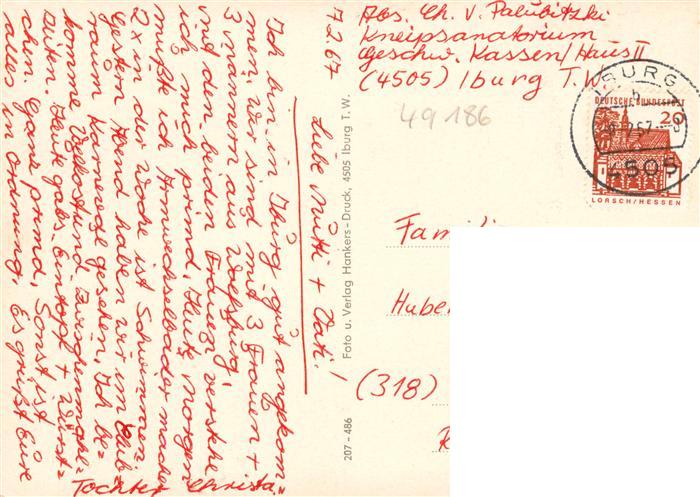 7.2.67
Liebe Mutti + Vati!
Ich bin in Iburg gut angekom=
men, wir sind mit 3 Frauen +
3 männern aus Wolfsburg,
mit den beiden Frauen verstehe
ich mich prima, Heute morgen
mußte ich Armwechselbäder machen
2 x in der Woche ist Schwimmen.
Gestern Abend haben wir im Club=
raum Karneval gesehen, Ich be=
komme Vollkost und Zwischenmahl=
zeiten. Heute gabs Eintopf + Würst=
chen ganz prima, Sonst ist
alles in Ordnung, Es grüßt Eure
Tochter Christa."
Foto u. Verlag Hankers-Druck, 4505 Iburg T.W.
207-486
Abs. Ch. v. Palubitzki
Kneipsanatorium
Geschw. Kassen/Haus II
(4505) Iburg T.W.
49186
IBURG
b
67
4505
DEUTSCHE BUNDESPOST
20
LORSCH/HESSEN
Famili
Huber
(318)